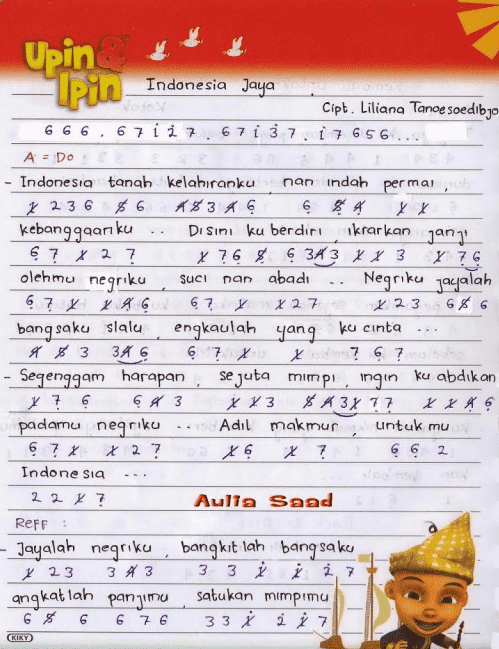 Upin & Ipin
Indonesia Jaya
Cipt. Liliana Tanoesoedibjo
6 6 6 . 6 7 i̇ 2̇ 7 6 7 i̇ 3̇ 7 . i̇ 7 6 5 6 ...
A = Do
- Indonesia tanah kelahiranku nan indah permai,
1̸ 2 3 6 5̸ 6 4̸ 5̸ 3 4̸ 6 6 5̸ 4̸ 1̸ 1̸
kebanggaanku .. Disini ku berdiri, ikrarkan janji
6̣ 7̣ 1̸ 2 7̣ 1̸ 7 6 5̸ 6 3 4̸ 3 1̸ 1̸ 3 1̸ 7 6
olehmu negriku, suci nan abadi .. Negriku jayalah
6̣ 7̣ 1̸ 1̸ 4̸ 6 6̣ 7̣ 1̸ 1̸ 2 7 1̸ 2 3 6 5̸ 6
bangsaku slalu, engkaulah yang ku cinta ...
4̸ 5̸ 3 3 4̸ 6 6̣ 7̣ 1̸ 1̸ 7 6̣ 7̣
- Segenggam harapan, sejuta mimpi, ingin ku abdikan
1̸ 7̣ 6̣ 6 4̸ 3 1̸ 1̸ 3 5̸ 4̸ 3 1̸ 7 7 1̸ 1̸ 4̸ 6
padamu negriku ... Adil makmur, untuk mu
6̣ 7̣ 1̸ 1̸ 2 7̣ 1̸ 6̣ 1̸ 7̣ 6̣ 6̣ 2
Indonesia ...
2 2 1̸ 7̣
Aulia Saad
Reff :
- Jayalah negriku, bangkitlah bangsaku
1̸ 2 3 3 4̸ 3 3 3 1̸̇ 1̸̇ 2̇ 7
angkatlah panjimu, satukan mimpimu
6 5̸ 6 6 7 6 3 3 1̸̇ 2̇ 1̸̇ 7
KIKY